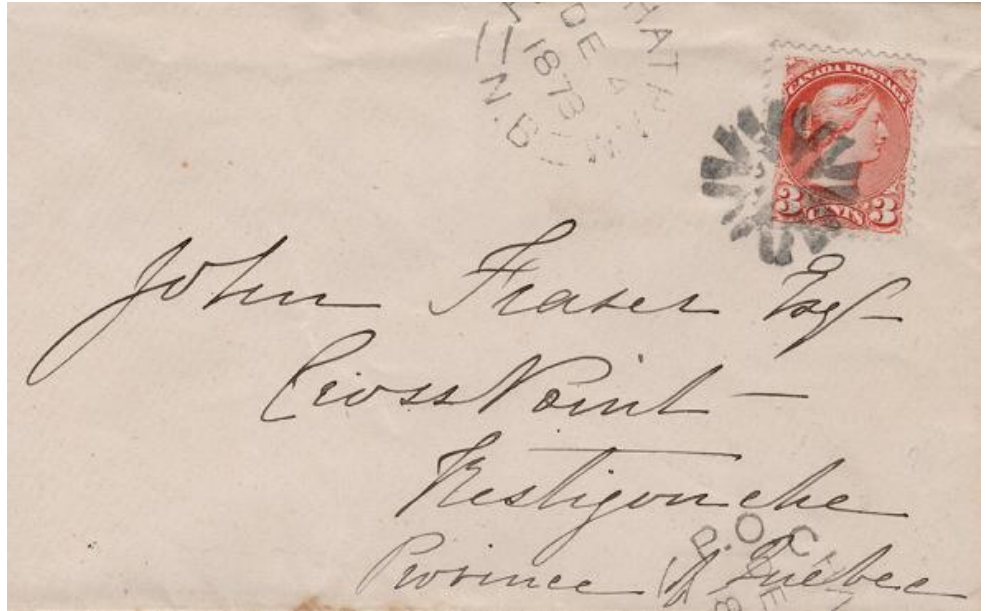 HATH
DE 4
1873
N.B
CANADA POSTAGE
3 CENTS 3
John Fraser Esq
Cross Point
Restigouche
Province of Quebec